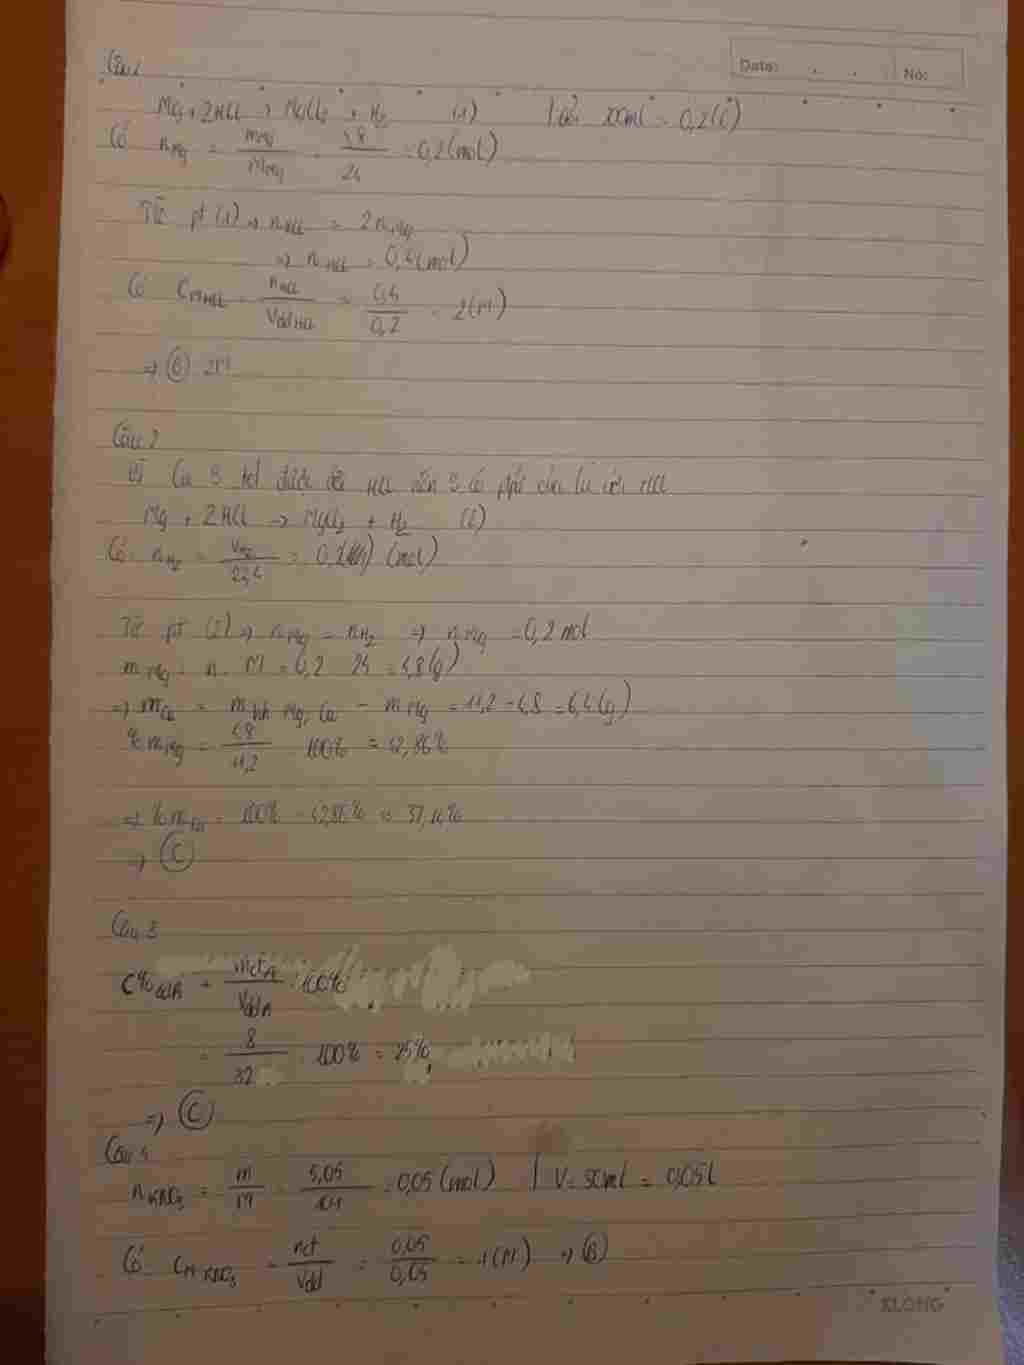 Date:
No:
Câu 1
Mg + 2HCl → MgCl2 + H2 (1) 200ml = 0,2(l)
Có nMg = mMg/MMg = 4,8/24 = 0,2(mol)
Từ pt (1) → nHCl = 2nMg
→ nHCl = 0,4(mol)
Có CMHCl = nHCl/VddHCl = 0,4/0,2 = 2(M)
⇒ (B) 2M
Câu 2
Vì Cu k td được với HCl nên k có pứ của Cu với HCl
Mg + 2HCl → MgCl2 + H2 (2)
Có nH2 = VH2/22,4 = 0,2 (mol)
Từ pt (2) ⇒ nMg = nH2 ⇒ nMg = 0,2 mol
mMg = n. M = 0,2 24 = 4,8(g)
⇒ mCu = mhh Mg, Cu - mMg = 11,2 - 4,8 = 6,4(g)
%mMg = 4,8/11,2 . 100% = 42,86%
⇒ %mCu = 100% - 42,86% = 57,14%
⇒ (C)
Câu 3
C% ddA = mctA/VddA . 100%
= 8/32 . 100% = 25%
⇒ (C)
Câu 4
nKNO3 = m/M = 5,05/101 = 0,05(mol) | V = 50ml = 0,05l
Có CM KNO3 = nct/Vdd = 0,05/0,05 = 1(M) ⇒ (B)
KLONG